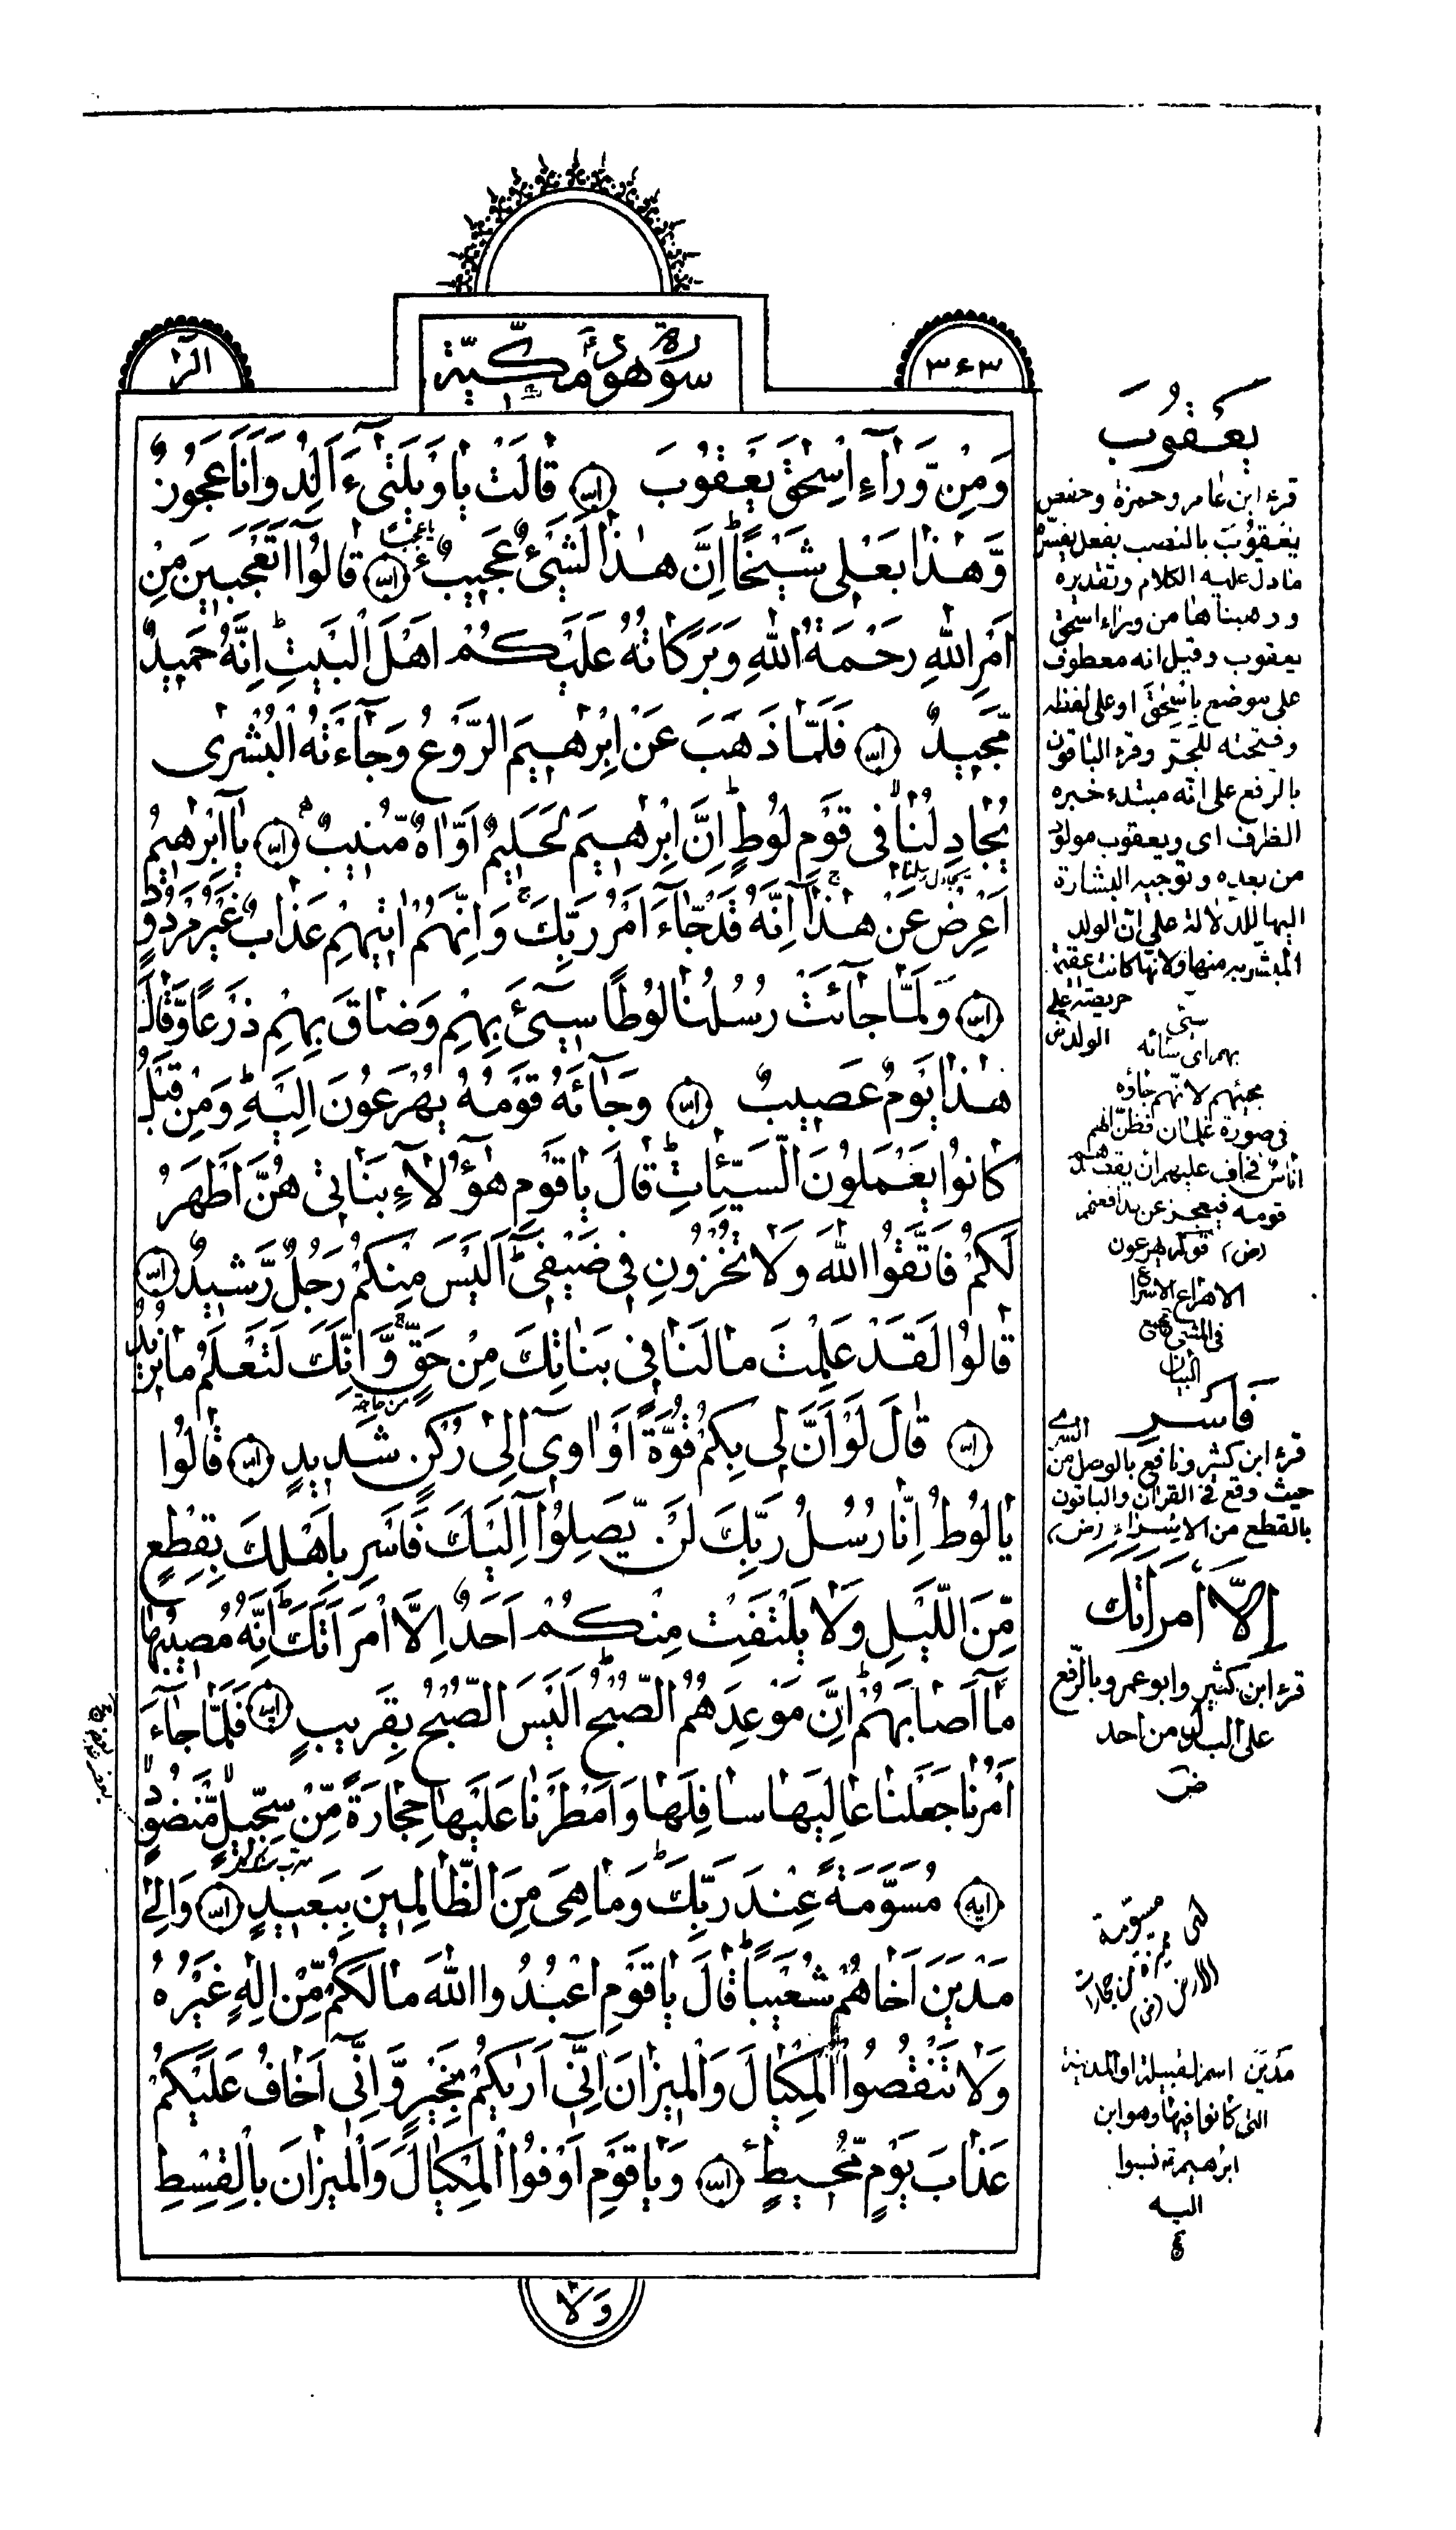 الٓرٰ
سورة هود مكّيّة
٣۶٣
وَمِنْ وَّرَآءِ اِسْحٰقَ يَعْقُوبَ ۝ قٰالَتْ يٰا وَيْلَتٰىٓ ءَاَلِدُ وَاَنَا عَجُوزٌ
وَّهٰذٰا بَعْلِى شَيْخًاؕ اِنَّ هٰذٰا لَشَيْئٌ عَجِيبٌ ۝ قٰالُوٓا اَتَعْجَبِينَ مِنْ
اَمْرِ اللّٰهِ رَحْمَةُ اللّٰهِ وَبَرَكٰاتُهُ عَلَيْكُمْ اَهْلَ الْبَيْتِؕ اِنَّهُ حَمِيدٌ
مَّجِيدٌ ۝ فَلَمّٰا ذَهَبَ عَنْ اِبْرٰهِيمَ الرَّوْعُ وَجٰآءَتْهُ الْبُشْرٰى
يُجٰادِلُنٰا فِى قَوْمِ لُوطٍؕ اِنَّ اِبْرٰهِيمَ لَحَلِيمٌ اَوّٰاهٌ مُّنِيبٌ ۝ يٰٓا اِبْرٰهِيمُ
اَعْرِضْ عَنْ هٰذٰا اِنَّهُ قَدْ جٰٓاءَ اَمْرُ رَبِّكَ وَاِنَّهُمْ اٰتِيهِمْ عَذٰابٌ غَيْرُ مَرْدُودٍ
۝ وَلَمّٰا جٰٓائَتْ رُسُلُنٰا لُوطًا سِيٓئَ بِهِمْ وَضٰاقَ بِهِمْ ذَرْعًا وَّقٰالَ
هٰذٰا يَوْمٌ عَصِيبٌ ۝ وَجٰٓائَهُ قَوْمُهُ يُهْرَعُونَ اِلَيْهِؕ وَمِنْ قَبْلُ
كٰانُوا يَعْمَلُونَ السَّيِّئٰاتِؕ قٰالَ يٰا قَوْمِ هٰٓؤُلٰآءِ بَنٰاتِى هُنَّ اَطْهَرُ
لَكُمْ فَاتَّقُوا اللّٰهَ وَلٰا تُخْزُونِ فِى ضَيْفِىؕ اَلَيْسَ مِنْكُمْ رَجُلٌ رَّشِيدٌ ۝
قٰالُوا لَقَدْ عَلِمْتَ مٰا لَنٰا فِى بَنٰاتِكَ مِنْ حَقٍّ وَّاِنَّكَ لَتَعْلَمُ مٰا نُرِيدُ
۝ قٰالَ لَوْ اَنَّ لِى بِكُمْ قُوَّةً اَوْ اٰوِىٓ اِلٰى رُكْنٍ شَدِيدٍ ۝ قٰالُوا
يٰا لُوطُ اِنّٰا رُسُلُ رَبِّكَ لَنْ يَّصِلُوٓا اِلَيْكَ فَاَسْرِ بِاَهْلِكَ بِقِطْعٍ
مِّنَ اللَّيْلِ وَلٰا يَلْتَفِتْ مِنْكُمْ اَحَدٌ اِلَّا امْرَاَتَكَؕ اِنَّهُ مُصِيبُهٰا
مٰٓا اَصٰابَهُمْؕ اِنَّ مَوْعِدَهُمُ الصُّبْحُؕ اَلَيْسَ الصُّبْحُ بِقَرِيبٍ ۝ فَلَمّٰا جٰآءَ
اَمْرُنٰا جَعَلْنٰا عٰالِيَهٰا سٰافِلَهٰا وَاَمْطَرْنٰا عَلَيْهٰا حِجٰارَةً مِّنْ سِجِّيلٍ مَّنْضُودٍ
۝ مُسَوَّمَةً عِنْدَ رَبِّكَؕ وَمٰا هِىَ مِنَ الظّٰالِمِينَ بِبَعِيدٍ ۝ وَاِلٰى
مَدْيَنَ اَخٰاهُمْ شُعَيْبًاؕ قٰالَ يٰا قَوْمِ اعْبُدُوا اللّٰهَ مٰا لَكُمْ مِّنْ اِلٰهٍ غَيْرُهُ
وَلٰا تَنْقُصُوا الْمِكْيٰالَ وَالْمِيزٰانَ اِنِّىٓ اَرٰيكُمْ بِخَيْرٍ وَّاِنِّىٓ اَخٰافُ عَلَيْكُمْ
عَذٰابَ يَوْمٍ مُّحِيطٍ ۝ وَيٰا قَوْمِ اَوْفُوا الْمِكْيٰالَ وَالْمِيزٰانَ بِالْقِسْطِ
وَلٰا
يَعْقُوبَ
قرء ابن عامر وحمزة وحفص
يعقوبَ بالنصب بفعل يفسره
ما دل عليه الكلام وتقديره
ووهبناها من وراء اسحق
يعقوب وقيل انه معطوف
على موضع باسحٰق او على لفظه
وفتحته للجر وقرء الباقون
بالرفع على انه مبتدء خبره
الظرف اى ويعقوب مولود
من بعده وتوجيه البشارة
اليها للدلالة على ان الولد
المبشر به منها ولانها كانت عقيمة
حريصة على
الولد
سيئ
بهم اى سائه
مجيئهم لانهم جاؤه
فى صورة غلمان فظن انهم
اناس فخاف عليهم ان يقصدهم
قومه فيعجز عن مدافعتهم
(ض) قوله يهرعون
الاهراع الاسراع
فى المشى مجمع
البيان
فَاَسْرِ
قرء ابن كثير ونافع بالوصل من السرى
حيث وقع فى القرآن والباقون
بالقطع من الاسراء (ض)
اِلَّا امْرَاَتَكَ
قرء ابن كثير وابو عمرو بالرفع
على البدل من احد
ض
مسوّمة
مَدْيَنَ اسم لقبيلة او المدينة
التى كانوا فيها وهو ابن
ابرهيم نسبوا
اليه